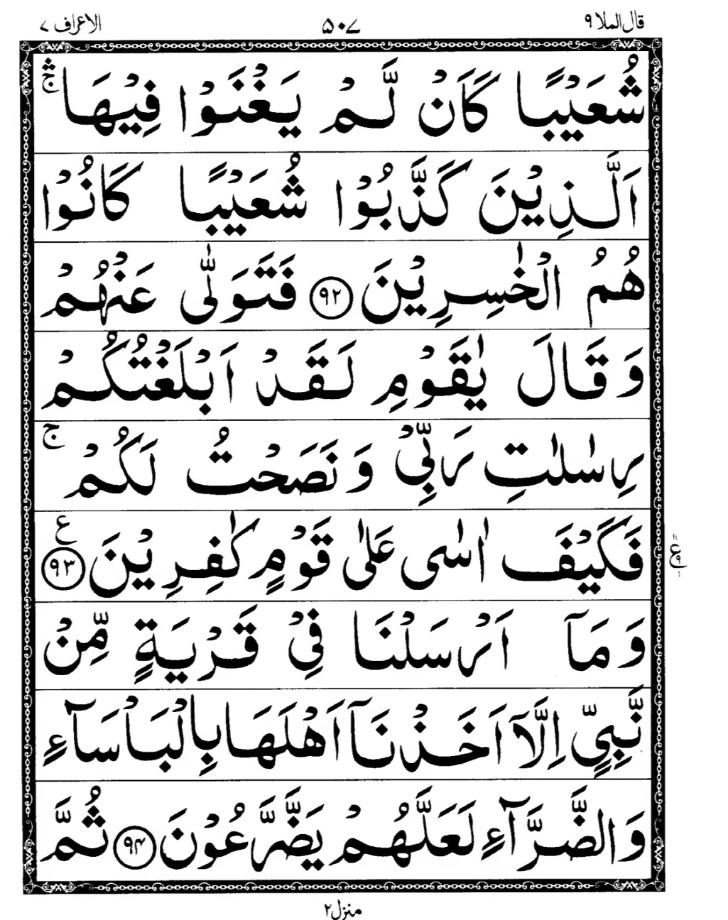 قال الملا ۹ ۵۰۷ الاعراف ۷
شُعَيْبًا كَاَنْ لَّمْ يَغْنَوْا فِيْهَا ۛۚ
اَلَّذِيْنَ كَذَّبُوْا شُعَيْبًا كَانُوْا
هُمُ الْخٰسِرِيْنَ ۹۲ فَتَوَلّٰى عَنْهُمْ
وَقَالَ يٰقَوْمِ لَقَدْ اَبْلَغْتُكُمْ
رِسٰلٰتِ رَبِّيْ وَنَصَحْتُ لَكُمْ ۚ
فَكَيْفَ اٰسٰى عَلٰى قَوْمٍ كٰفِرِيْنَ ۹۳ ع
وَمَآ اَرْسَلْنَا فِيْ قَرْيَةٍ مِّنْ
نَّبِيٍّ اِلَّآ اَخَذْنَآ اَهْلَهَا بِالْبَاْسَآءِ
وَالضَّرَّآءِ لَعَلَّهُمْ يَضَّرَّعُوْنَ ۹۴ ثُمَّ
منزل ۲